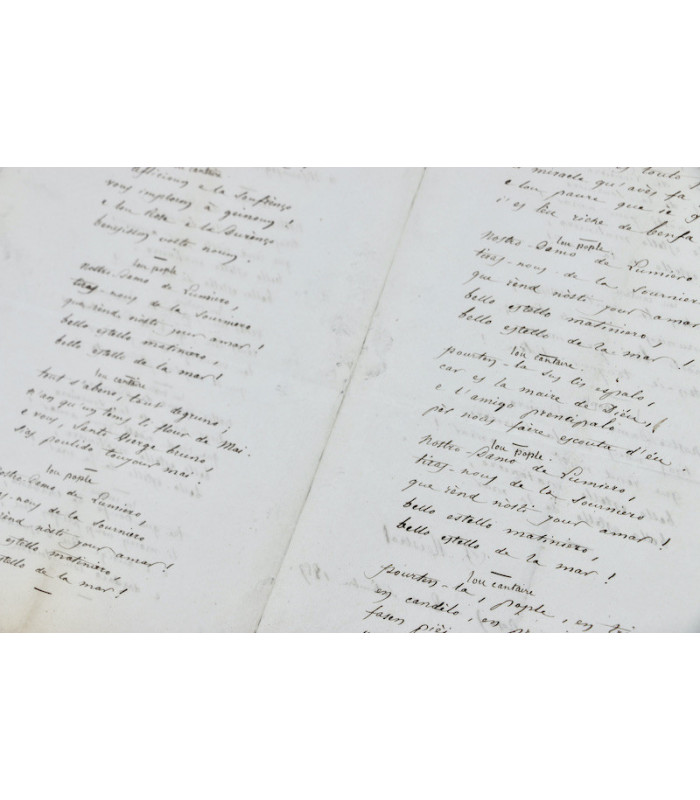 lou cantaire
aflicioun e la soufrènço
vous imploron à geinoun !
e lou Rose e la Durènço
benesisson voste noum.
lou pople
Nostro-Damo de Lumiero,
tiras-nous de la sourniero
que rènd nòsti jour amar !
bello estello matiniero,
bello estello de la mar !
lou cantaire
tout s'aberis, tout degruno ;
n'an qu'un tèms li flour de Mai.
e vous, Santo Vierge bruno,
sias poulido toujour mai !
lou pople
Nostro-Damo de Lumiero,
tiras-nous de la sourniero
rènd nòsti jour amar !
estello matiniero,
estello de la mar !
miracle qu'avès fa
e lou paure que se
i'es lou riche de
lou pople
Nostro-Damo de Lumiero,
tiras-nous de la sourniero
que rènd nòsti jour amar
bello estello matiniero,
bello estello de la mar !
lou cantaire
pourten-la sus lis espalo,
car es la maire de Diéu,
e l'amigo prencipalo
pèr nous faire escouta d'éu.
lou pople
Nostro-Damo de Lumiero,
tiras-nous de la sourniero
que rènd nòsti jour amar !
bello estello matiniero,
bello estello de la mar !
lou cantaire
pourten-la, pople, en
en candèlo, en
fasen